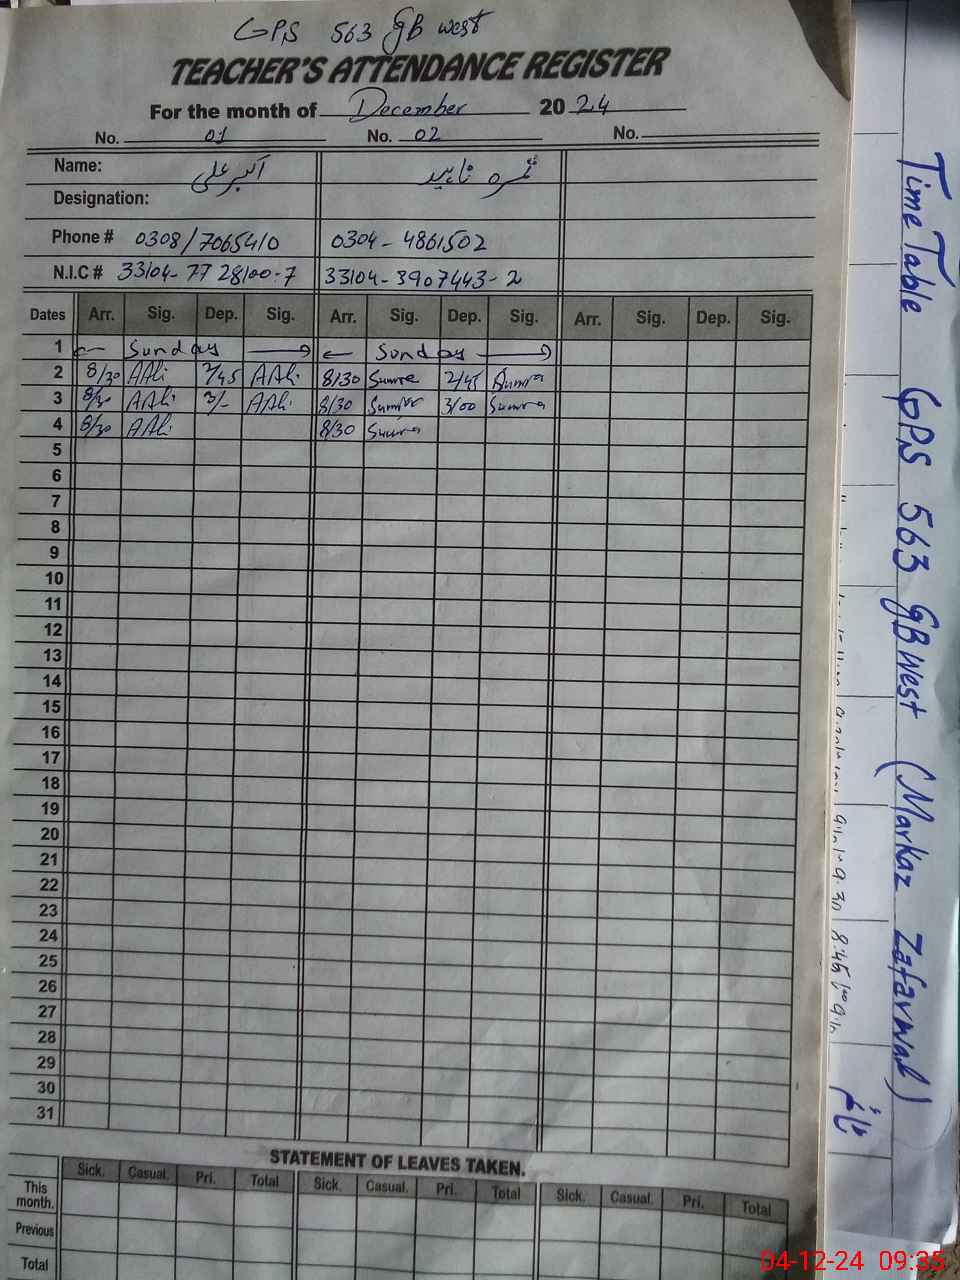 GPS 563 GB west
TEACHER'S ATTENDANCE REGISTER
For the month of December 2024
No. 01 No. 02 No.
Name: اکبر علی ثمرہ ناہید
Designation:
Phone # 0308/7065410 0304-4861502
N.I.C # 33104-7728100-7 33104-3907443-2
Dates Arr. Sig. Dep. Sig. Arr. Sig. Dep. Sig. Arr. Sig. Dep. Sig.
1 Sunday Sunday
2 8/30 AAli 2/45 AAli 8/30 Sumra 2/45 Sumra
3 8/30 AAli 3/- AAli 8/30 Sumra 3/00 Sumra
4 8/30 AAli 8/30 Sumra
5
6
7
8
9
10
11
12
13
14
15
16
17
18
19
20
21
22
23
24
25
26
27
28
29
30
31
STATEMENT OF LEAVES TAKEN.
Sick. Casual. Pri. Total Sick. Casual. Pri. Total Sick. Casual. Pri. Total
This month.
Previous
Total
Time Table GPS 563 GB West (Markaz Zafarwal)
8:45
04-12-24 09:35